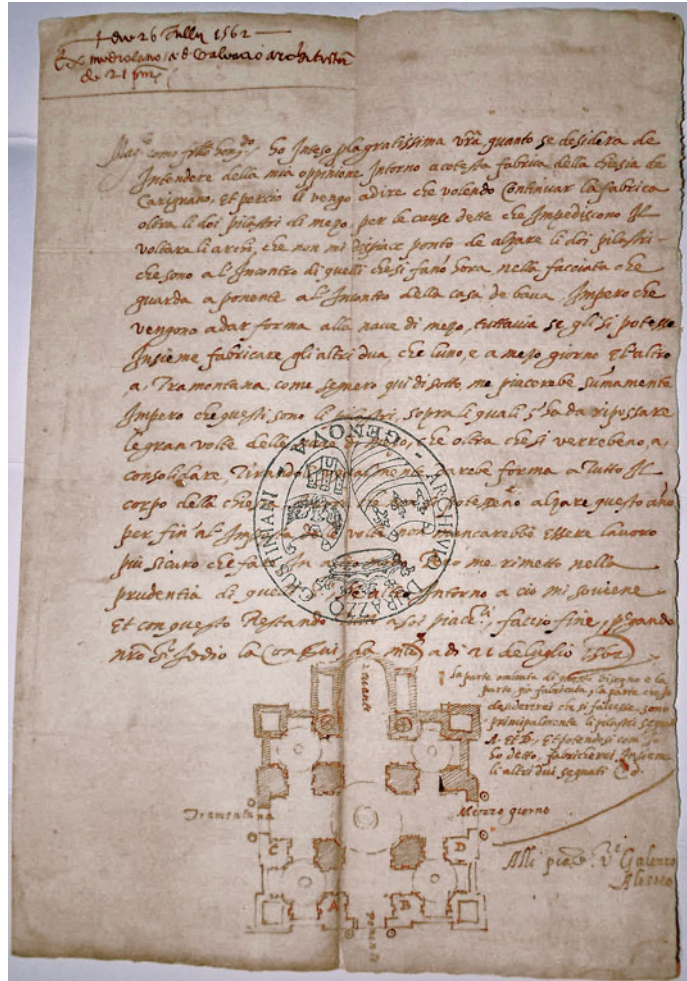 + 1562 26 Jullij 1562
Ex mediolano
de 21 ditto
Mag.co como fr̃llo hon.do, ho Inteso p la gratissima vr̃a, quanto se desidera de
Intendere della mia oppinione Intorno a cotesta fabrica della chiesia de
Carignano, Et percio li vengo a dire che volendo Continuar la fabrica
oltra li doi pilastri di mezo, per le cause dette che Impediscono Il
voltare li archi, che non mi dispiace ponto de alzare li doi pilastri
che sono a l'Incontro di quelli che si fano hora nella facciata che
guarda a ponente a l'Incontro della casa de bava, Impero che
vengono a dar forma alla nave di mezo, tuttavia se gli si potesse
Insieme fabricare, gli altri dua, che l'uno, e a mezo giorno Et l'altro
a Tramontana, come segnero qui di sotto, me piacerebe sumamente
Impero che questi sono li pilastri, sopra li quali s'ha da ripossare
le gran volte della nave di mezo, che oltra che si verrebeno, a,
consolidare, Tirandoli darebe forma a Tutto Il
corpo della chiesa alzare questo año
per fin' al' Imposta de le volte non mancarebbe Essere lavoro
piu sicuro che farlo In altro modo, me rimetto nella
prudentia di Intorno a cio mi soviene
Et con questo Restando a soi piac.ri, faccio fine, pregando
nr̃o S.r Iddio la Conservi, da a di 21 de luglio 1562
ARCHIVIO DURAZZO GIUSTINIANI - GENOVA -
Levante
la parte ombrata di questo disegno e la
parte gia fabricata, la parte ch'io
desidererei che si facesse sono
principalmente li pilastri segnati
A. et B, Et potendosi com' Io
ho detto, fabricherei Insieme
li altri dui segnati C d.
Tramontana
Mezzo giorno
C
D
A
B
ponente
Alli piac.ri v.ri Galeazo
Alessio